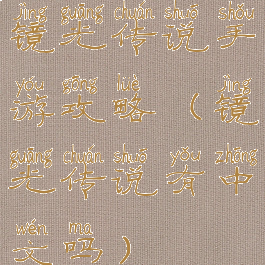 jìng guāng chuán shuō shǒu
镜光传说手
yóu gōng lüè jìng
游攻略（镜
guāng chuán shuō yǒu zhōng
光传说有中
wén ma
文吗）